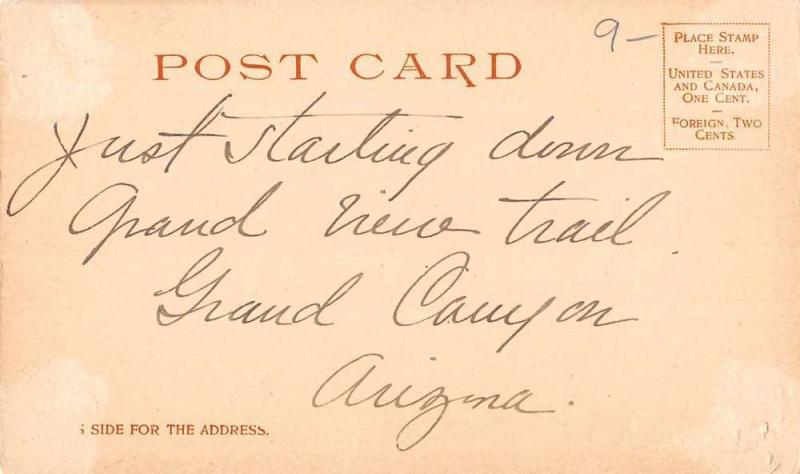 9-
POST CARD
PLACE STAMP
HERE.
—
UNITED STATES
AND CANADA,
ONE CENT.
—
FOREIGN, TWO
CENTS
Just starting down
Grand View trail.
Grand Canyon
Arizona.
SIDE FOR THE ADDRESS.